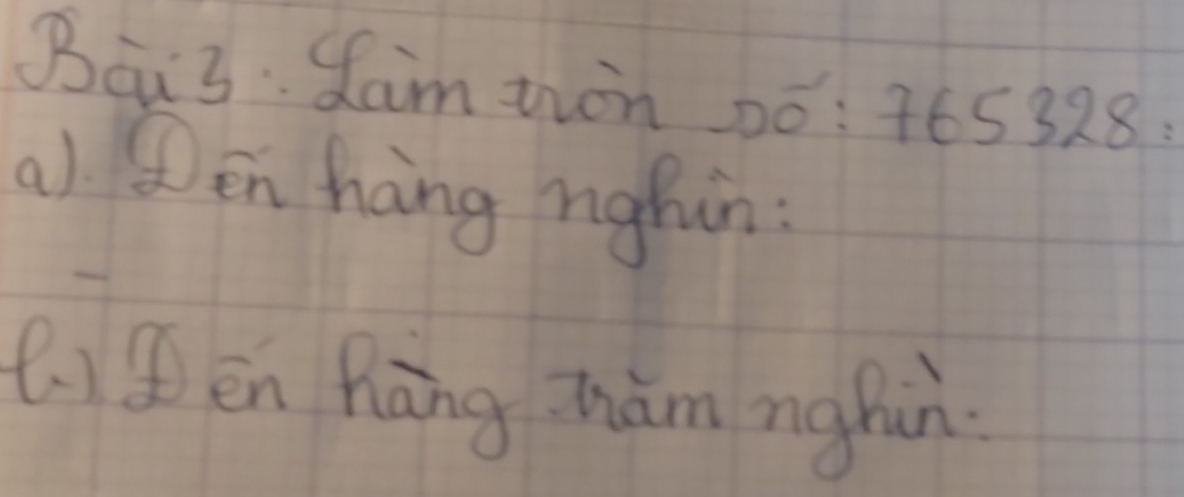 Bài 3: Làm tròn số: 765328:
a). Đến hàng nghìn:
-
b.) Đến hàng trăm nghìn: